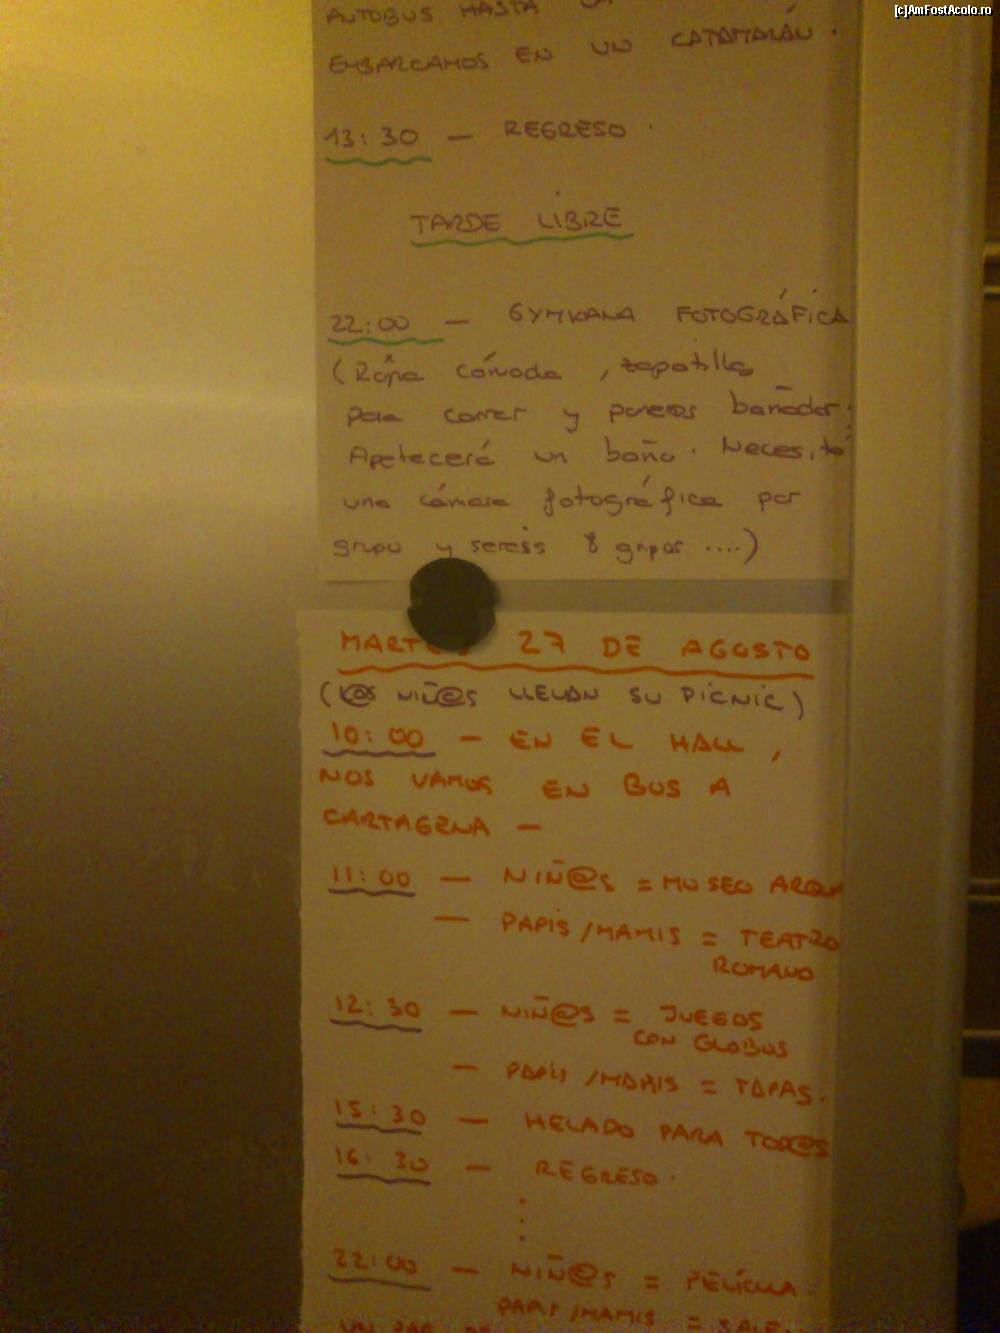 [c]AmFostAcolo.ro
AUTOBUS HASTA
EMBARCAMOS EN UN CATAMARÁN.
13:30 — REGRESO.
TARDE LIBRE
22:00 — GYMKANA FOTOGRÁFICA
(Ropa cómoda, zapatillas
para correr y poneros bañador.
Apetecerá un baño. Necesito
una cámara fotográfica por
grupo y sereis 8 grupos ....)
MARTES 27 DE AGOSTO
(L@S NIÑ@S LLEVAN SU PICNIC)
10:00 — EN EL HALL,
NOS VAMOS EN BUS A
CARTAGENA —
11:00 — NIÑ@S = MUSEO ARQU
— PAPIS/MAMIS = TEATRO
ROMANO
12:30 — NIÑ@S = JUEGOS
CON GLOBOS
— PAPIS/MAMIS = TAPAS.
15:30 — HELADO PARA TOD@S
16:30 — REGRESO.
22:00 — NIÑ@S = PELÍCULA.
PAPIS/MAMIS = SALE
UN PAR DE